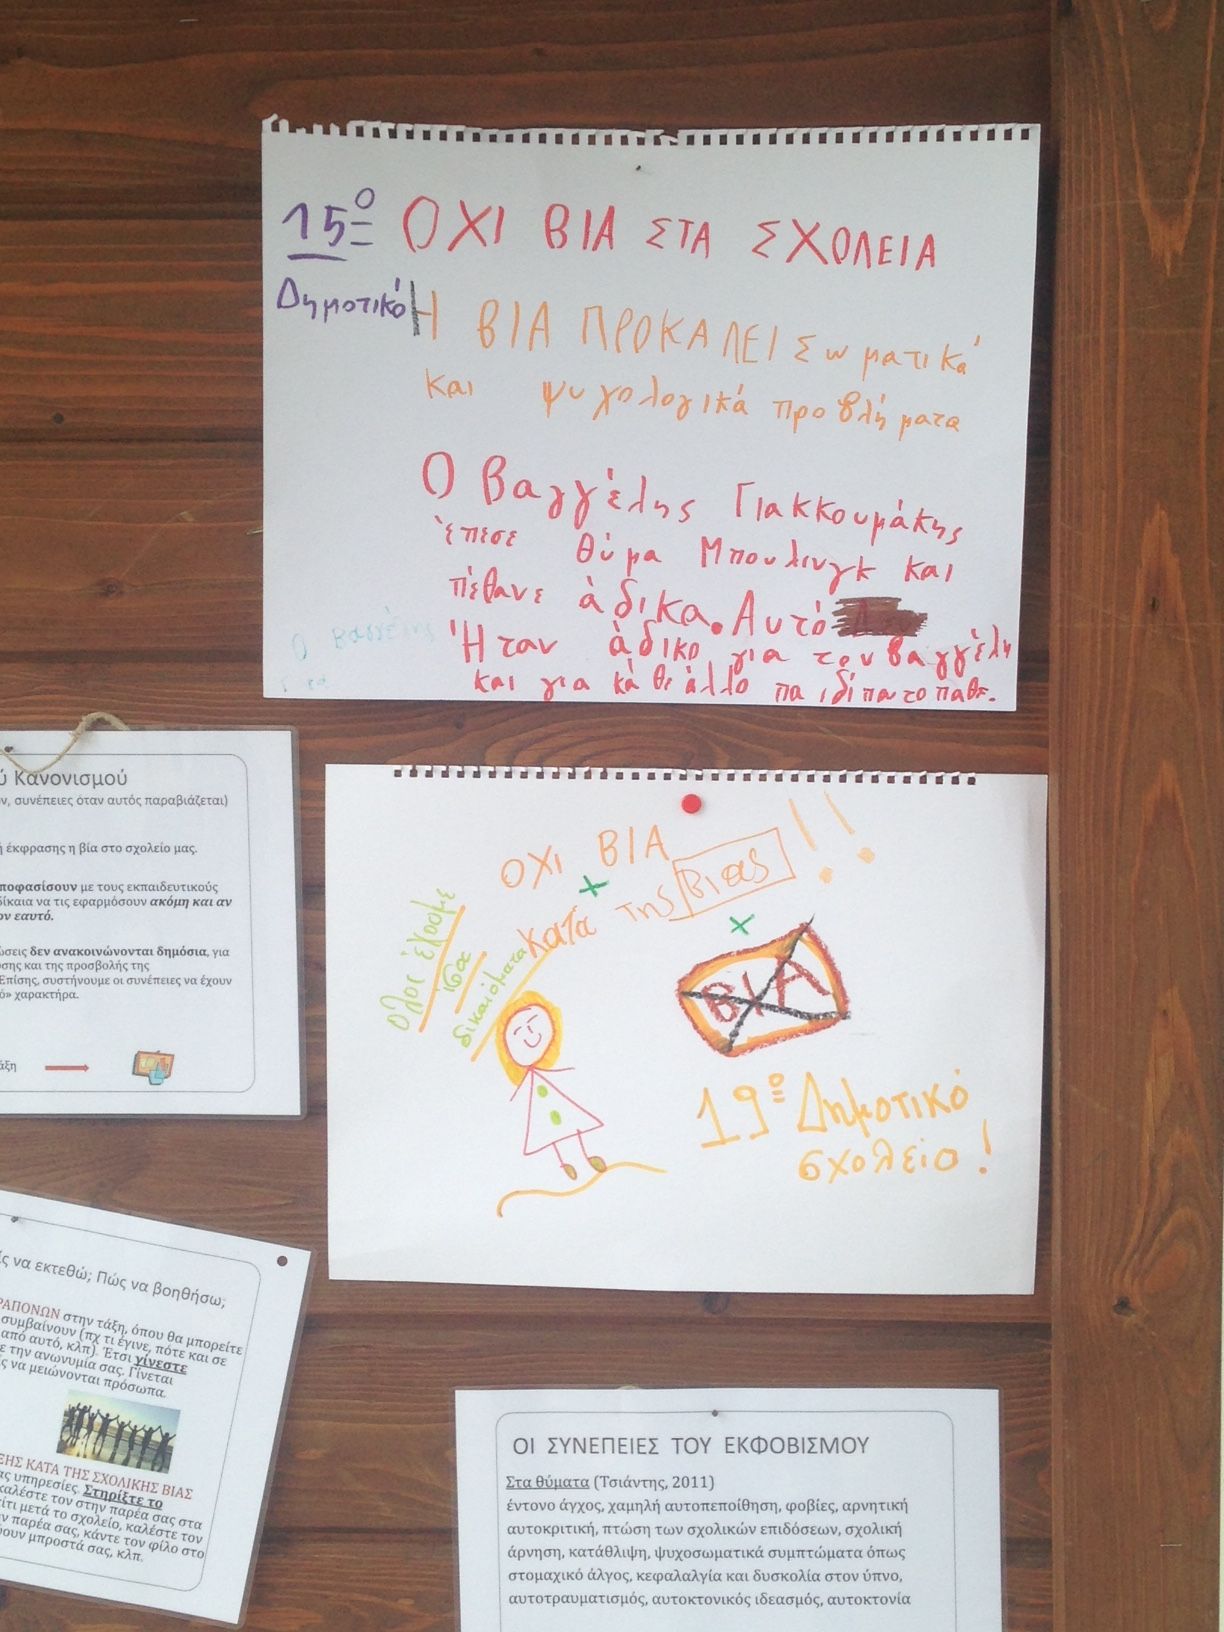 15º ΟΧΙ ΒΙΑ ΣΤΑ ΣΧΟΛΕΙΑ
Δημοτικό
Η ΒΙΑ ΠΡΟΚΑΛΕΙ Σωματικά
και ψυχολογικά προβλήματα
Ο Βαγγέλης Γιακκουμάκης
έπεσε θύμα Μπουλινγκ και
πέθανε άδικα. Αυτό
Ήταν άδικο για τον Βαγγέλη
και για κάθε άλλο παιδί που το παθε.
ύ Κανονισμού
ν, συνέπειες όταν αυτός παραβιάζεται)
ή έκφρασης η βία στο σχολείο μας.
ποφασίσουν με τους εκπαιδευτικούς
δίκαια να τις εφαρμόσουν ακόμη και αν
ον εαυτό.
ώσεις δεν ανακοινώνονται δημόσια, για
υσης και της προσβολής της
Επίσης, συστήνουμε οι συνέπειες να έχουν
ό» χαρακτήρα.
άξη
ΟΧΙ ΒΙΑ !!
κατά της βιας
όλοι έχοσμε
ισα
δικαιόματα
ΒΙΑ
19º Δημοτικό
σχολείο!
ίς να εκτεθώ; Πώς να βοηθήσω;
ΡΑΠΟΝΩΝ στην τάξη, όπου θα μπορείτε
συμβαίνουν (πχ τι έγινε, πότε και σε
από αυτό, κλπ). Έτσι γίνεστε
ε την ανωνυμία σας. Γίνεται
ς να μειώνονται πρόσωπα.
ΞΗΣ ΚΑΤΑ ΤΗΣ ΣΧΟΛΙΚΗΣ ΒΙΑΣ
ας υπηρεσίες. Στηρίξτε το
καλέστε τον στην παρέα σας στα
πίτι μετά το σχολείο, καλέστε τον
ν παρέα σας, κάντε τον φίλο στο
ουν μπροστά σας, κλπ.
ΟΙ ΣΥΝΕΠΕΙΕΣ ΤΟΥ ΕΚΦΟΒΙΣΜΟΥ
Στα θύματα (Τσιάντης, 2011)
έντονο άγχος, χαμηλή αυτοπεποίθηση, φοβίες, αρνητική
αυτοκριτική, πτώση των σχολικών επιδόσεων, σχολική
άρνηση, κατάθλιψη, ψυχοσωματικά συμπτώματα όπως
στομαχικό άλγος, κεφαλαλγία και δυσκολία στον ύπνο,
αυτοτραυματισμός, αυτοκτονικός ιδεασμός, αυτοκτονία